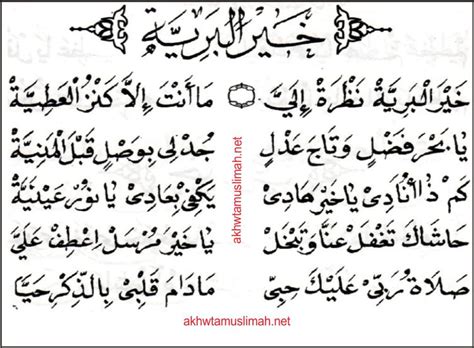 خَيْرُ الْبَرِيَّة
خَيْرَ الْبَرِيَّةْ نَظْرَةْ إِلَيَّ ۝ مَا أَنْتَ إِلَّا كَنْزُ الْعَطِيَّةْ
يَا بَحْرَ فَضْلٍ وَتَاجَ عَدْلٍ جُدْ لِى بِوَصْلٍ قَبْلَ الْمَنِيَّةْ
كَمْ ذَا أُنَادِىْ يَا خَيْرَ هَادِىْ يَكْفِى بِعَادِىْ يَا نُوْرَ عَيْنَيَّةْ
حَاشَاكَ تَغْفَلْ عَنَّا وَتَبْخَلْ يَا خَيْرَ مُرْسَلْ اِعْطِفْ عَلَيَّ
صَلَاةُ رَبِّىْ عَلَيْكَ حِبِّىْ مَا دَامَ قَلْبِىْ بِالذِّكْرِ حَيَّا
akhwtamuslimah.net
akhwtamuslimah.net